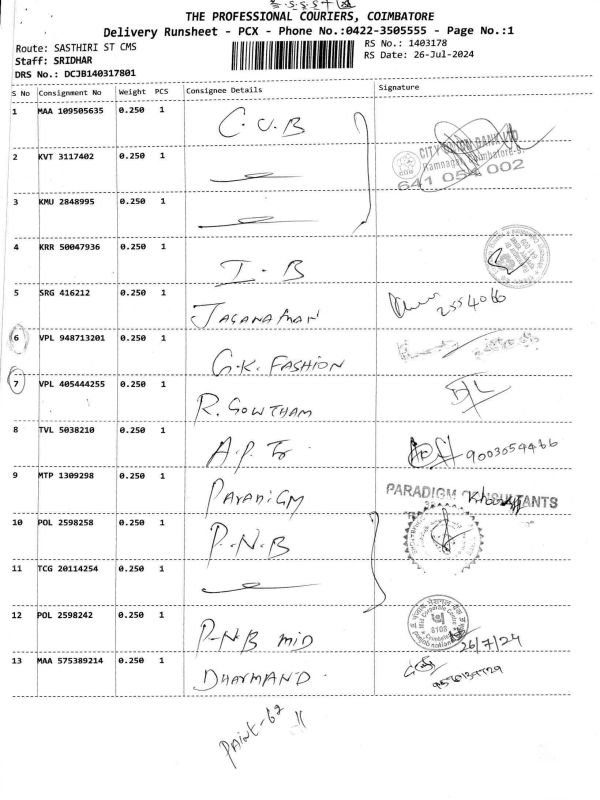 THE PROFESSIONAL COURIERS, COIMBATORE
Delivery Runsheet - PCX - Phone No.:0422-3505555 - Page No.:1
Route: SASTHIRI ST CMS
RS No.: 1403178
Staff: SRIDHAR
RS Date: 26-Jul-2024
DRS No.: DCJB140317801
S No Consignment No Weight PCS Consignee Details Signature
1 MAA 109505635 0.250 1 C.U.B
CITY UNION BANK LTD
Ramnagar, Coimbatore-9.
641 054 002
2 KVT 3117402 0.250 1
3 KMU 2848995 0.250 1
4 KRR 50047936 0.250 1 I.B
5 SRG 416212 0.250 1 JAGANATHAN 2554066
6 VPL 948713201 0.250 1 G.K. FASHION
7 VPL 405444255 0.250 1 R. GOWTHAM
8 TVL 5038210 0.250 1 A.P. Tr 9003054466
9 MTP 1309298 0.250 1 PARADIGM
PARADIGM CONSULTANTS
10 POL 2598258 0.250 1 P.N.B
11 TCG 20114254 0.250 1
12 POL 2598242 0.250 1 P-NB MID
26/7/24
13 MAA 575389214 0.250 1 DHARMAND